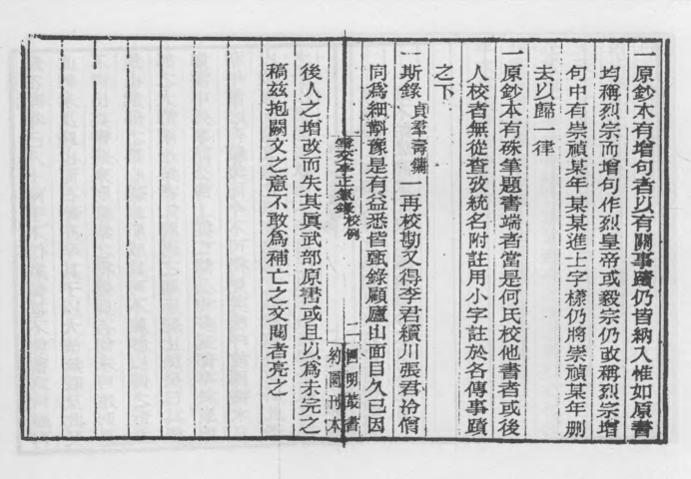 一原鈔本有增句者以有關事蹟仍皆納入惟如原書
均稱烈宗而增句作烈皇帝或毅宗仍改稱烈宗增
句中有崇禎某年某某進士字樣仍將崇禎某年刪
去以歸一律
一原鈔本有硃筆題書端者當是何氏校他書者或後
人校者無從查攷統名附註用小字註於各傳事蹟
之下
一斯錄貞羣壽鏞一再校勘又得李君續川張君洽僧
同為細斠豫是有益悉皆甄錄顧廬山面目久已因
雪交亭正氣錄 校例
二
四明叢書
約園刊本
後人之增改而失其眞武部原書或且以為未完之
稿茲抱闕文之意不敢為補亡之文閱者亮之